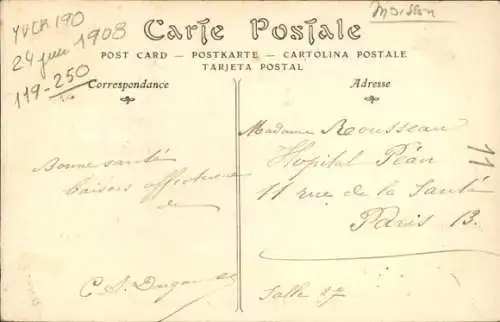 YVCR 190
24 juin 1908
119-250
Moisson
Carte Postale
POST CARD — POSTKARTE — CARTOLINA POSTALE
TARJETA POSTAL
Correspondance
Adresse
Bonne santé
baisers affectueux
de
Madame Rousseau
Hopital Péan
11 rue de la Santé
Paris 13.
Salle 27
11